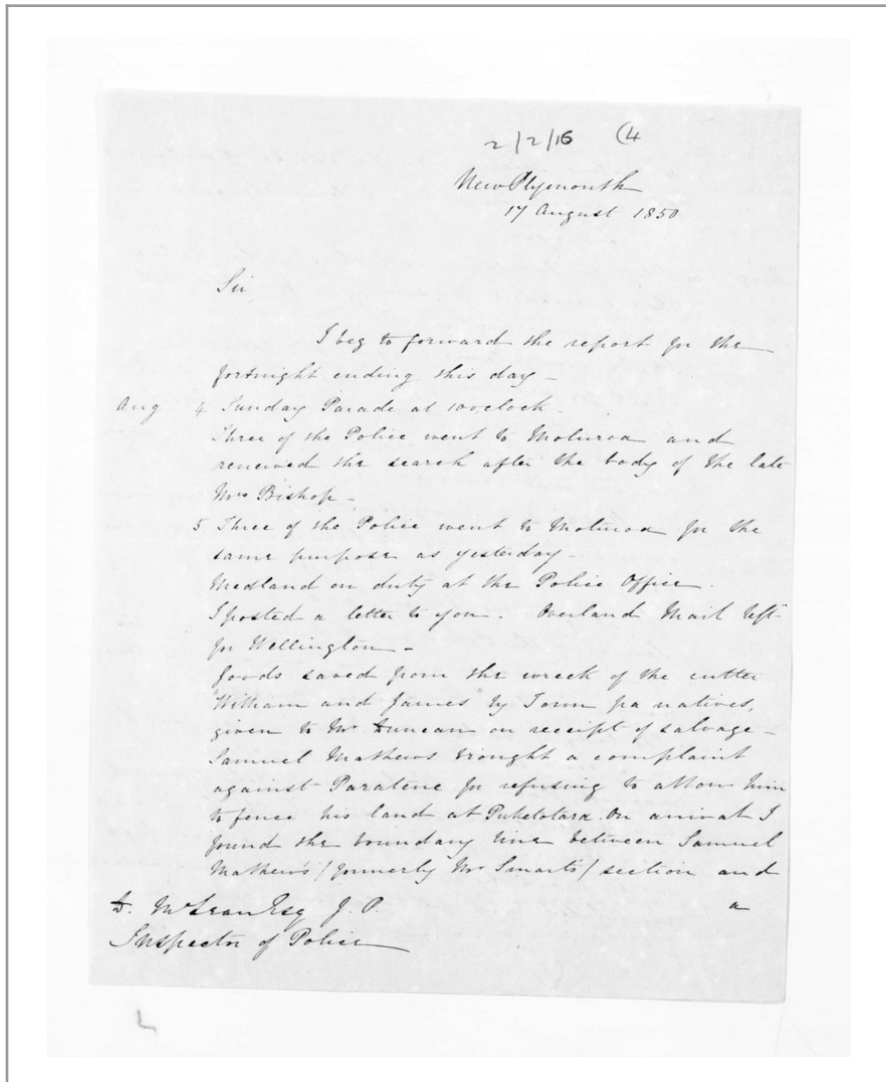 2/2/16 (4
New Plymouth
17 August 1850
Sir
I beg to forward the report for the
fortnight ending this day -
Aug 4 Sunday Parade at 10 oclock.
Three of the Police went to Moturoa and
renewed the search after the body of the late
Mrs Bishop -
5 Three of the Police went to Moturoa for the
same purpose as yesterday -
Medland on duty at the Police Office.
I posted a letter to you. Overland Mail left
for Wellington -
Goods saved from the wreck of the cutter
"William and James" by Town pa natives,
given to Mr Duncan on receipt of salvage -
Samuel Mathews brought a complaint
against Paratene for refusing to allow him
to fence his land at Puketotara. On arrival I
found the boundary line between Samuel
Mathews /formerly Mr Smart's/ section and
a
D. McLean Esq J. P.
Inspector of Police